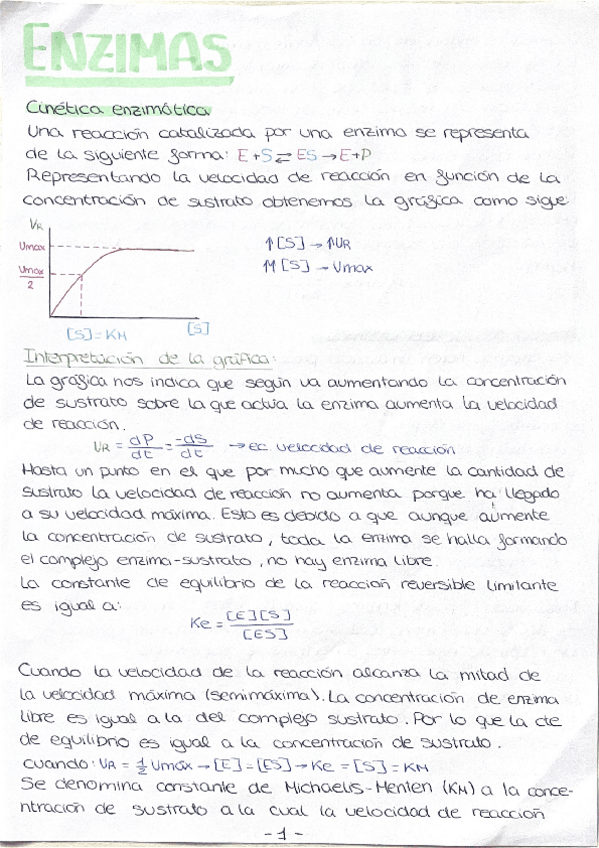 ENZIMAS
Cinética enzimática
Una reacción catalizada por una enzima se representa
de la siguiente forma: E+S ⇌ ES → E+P
Representando la velocidad de reacción en función de la
concentración de sustrato obtenemos la gráfica como sigue:
VR
Vmax
Vmax/2
[S]=KM
[S]
↑[S] → ↑VR
↑↑[S] → Vmax
Interpretación de la gráfica:
La gráfica nos indica que según va aumentando la concentración
de sustrato sobre la que actúa la enzima aumenta la velocidad
de reacción.
VR = dP/dt = -dS/dt → ec velocidad de reacción
Hasta un punto en el que por mucho que aumente la cantidad de
sustrato la velocidad de reacción no aumenta porque ha llegado
a su velocidad máxima. Esto es debido a que aunque aumente
la concentración de sustrato, toda la enzima se halla formando
el complejo enzima-sustrato, no hay enzima libre.
La constante de equilibrio de la reacción reversible limitante
es igual a:
Ke = [E][S]/[ES]
Cuando la velocidad de la reacción alcanza la mitad de
la velocidad máxima (semimáxima). La concentración de enzima
libre es igual a la del complejo sustrato. Por lo que la cte
de equilibrio es igual a la concentración de sustrato.
cuando: VR = 1/2 Vmáx → [E]=[ES] → Ke = [S] = KM
Se denomina constante de Michaelis-Menten (KM) a la conce-
ntración de sustrato a la cual la velocidad de reacción
-1-